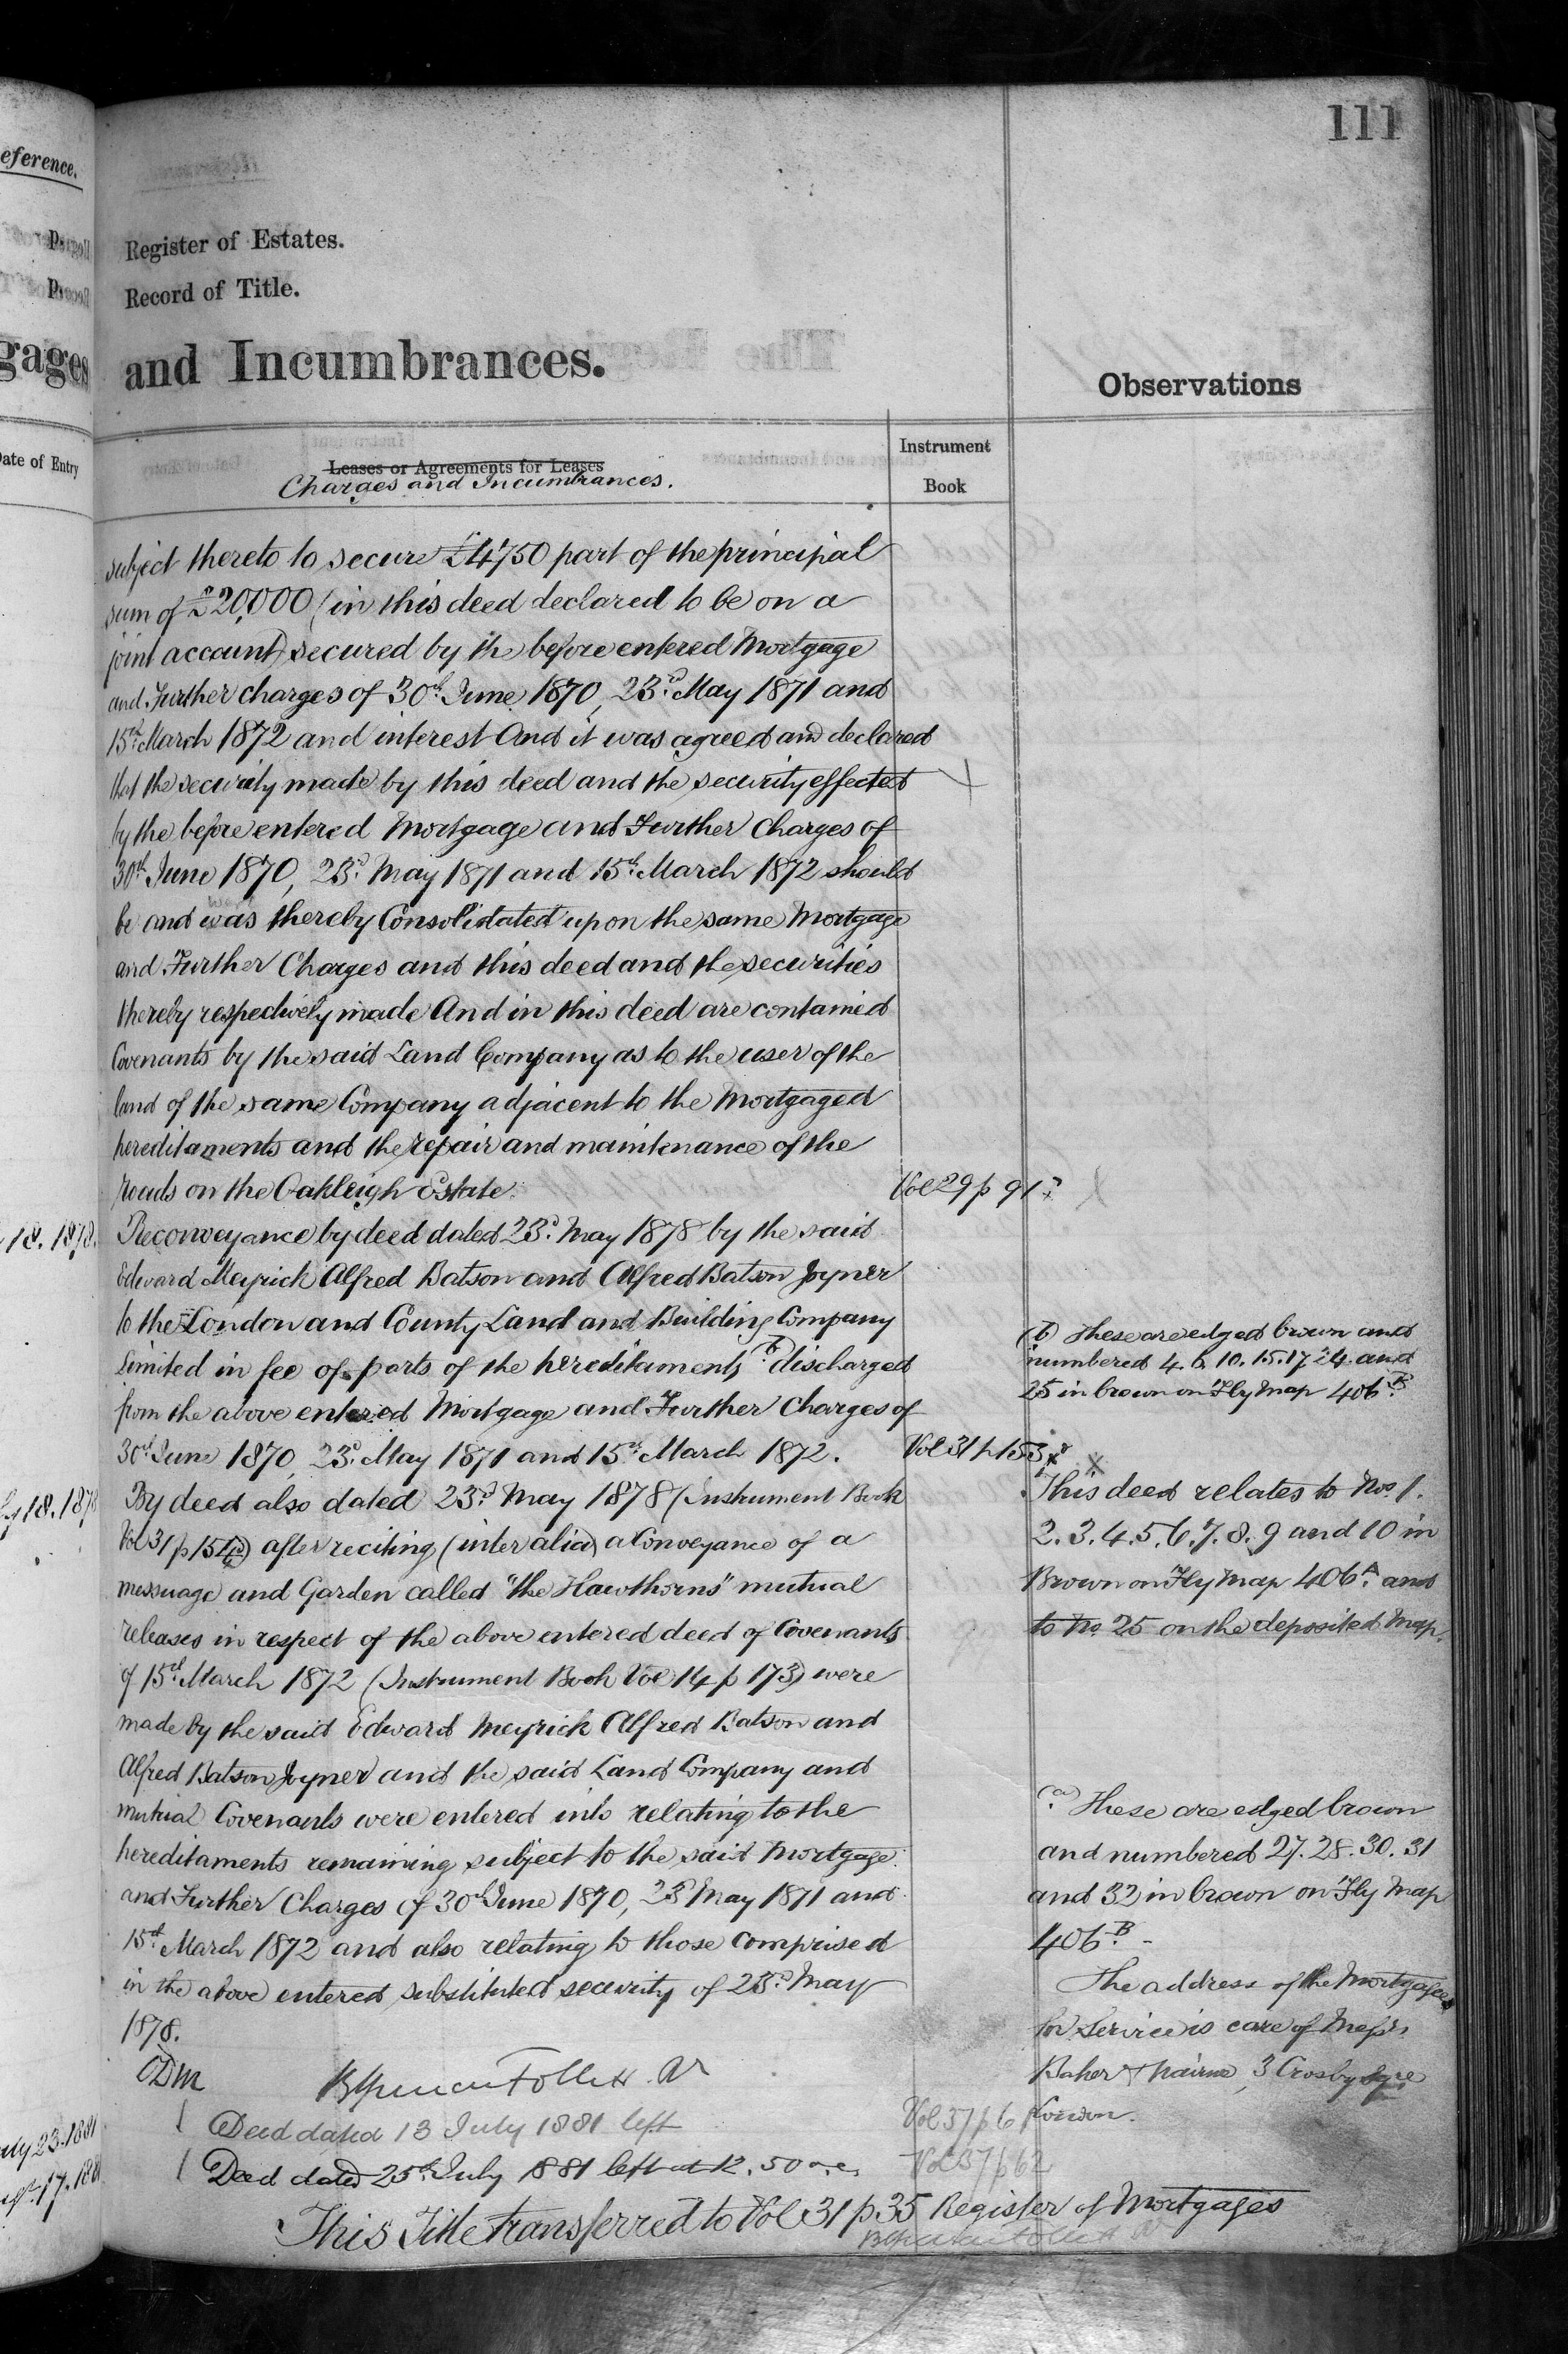 111
eference.
Register of Estates.
Record of Title.
gages
and Incumbrances.
Observations
Date of Entry
Leases or Agreements for Leases
Charges and Incumbrances.
Instrument
Book
subject thereto to secure £4750 part of the principal
sum of £20,000 (in this deed declared to be on a
joint account) secured by the before entered Mortgage
and Further charges of 30th June 1870, 23rd May 1871 and
15th March 1872 and interest And it was agreed and declared
that the security made by this deed and the security effected
by the before entered Mortgage and Further Charges of
30th June 1870, 23rd May 1871 and 15th March 1872 should
be and was thereby Consolidated upon the same Mortgage
and Further Charges and this deed and the securities
thereby respectively made And in this deed are contained
Covenants by the said Land Company as to the user of the
land of the same Company adjacent to the Mortgaged
hereditaments and the repair and maintenance of the
roads on the Oakleigh Estate.
Vol 29 p 91
18. 1878.
Reconveyance by deed dated 23rd May 1878 by the said
Edward Meyrick Alfred Batson and Alfred Batson Joyner
to the London and County Land and Building Company
Limited in fee of parts of the hereditaments (b) discharged
from the above entered Mortgage and Further Charges of
30th June 1870, 23rd May 1871 and 15th March 1872.
Vol 31 p 153
(b) These are edged brown and
numbered 4. 6. 10. 15. 17 24 and
25 in brown on Fly Map 406 B
ly 18. 1878
By deed also dated 23rd May 1878 (Instrument Book
Vol 31 p 154) after reciting (inter alia) a Conveyance of a
messuage and Garden called "the Hawthorns" mutual
releases in respect of the above entered deed of Covenants
of 15th March 1872 (Instrument Book Vol 14 p 173) were
made by the said Edward Meyrick Alfred Batson and
Alfred Batson Joyner and the said Land Company and
mutual Covenants were entered into relating to the
hereditaments remaining subject to the said Mortgage
and Further Charges of 30th June 1870, 23rd May 1871 and
15th March 1872 and also relating to those comprised
in the above entered substituted security of 23rd May
1878.
This deed relates to Nos. 1.
2. 3. 4. 5. 6. 7. 8. 9 and 10 in
Brown on Fly Map 406 A and
to No. 25 on the deposited Map.
(a) These are edged brown
and numbered 27. 28. 30. 31
and 32 in brown on Fly Map
406 B -
The address of the Mortgagees
for Service is care of Messrs
Baker & Nairne, 3 Crosby Sqre
London.
BSpencer Follett
Deed dated 13 July 1881 left
Vol 37 p 61
Deed dated 25th July 1881 left at 12.50
Vol 37 p 62
uly 23. 1881
17. 1881
This Title transferred to Vol 31 p 35 Register of Mortgages